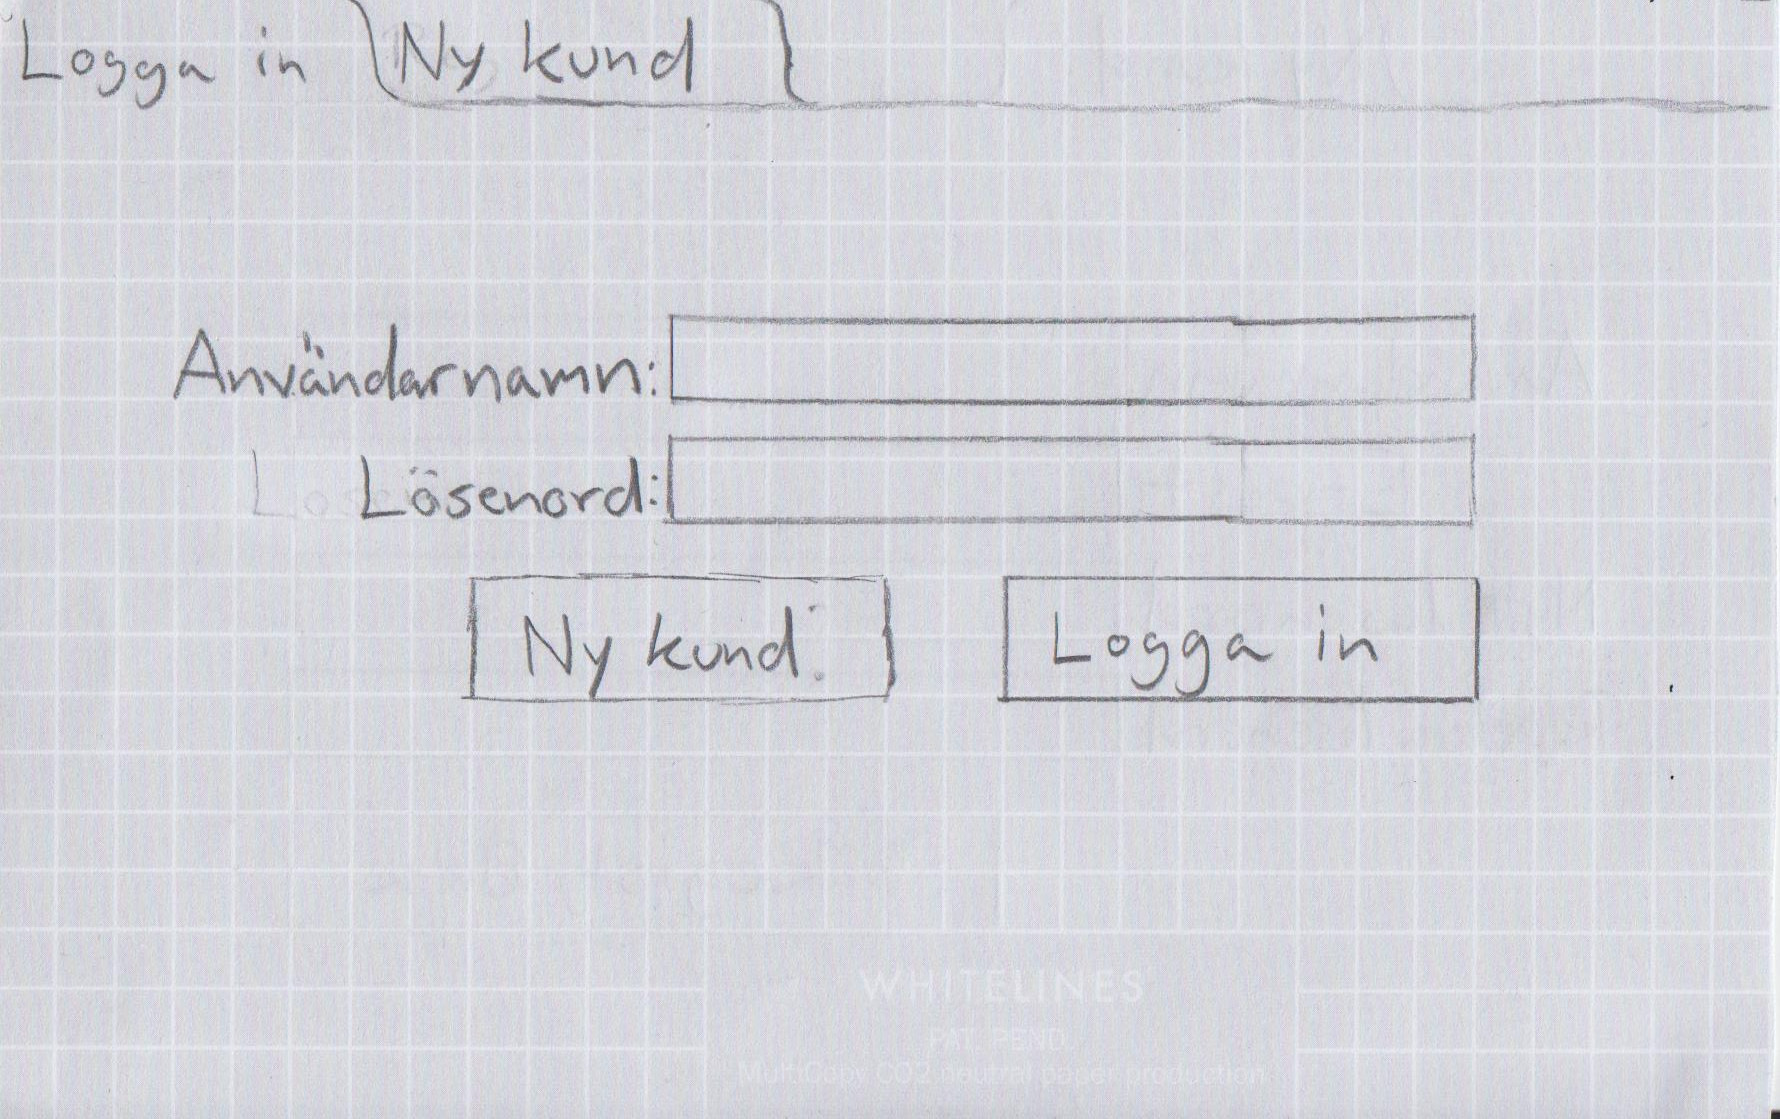 Logga in Ny kund
Användarnamn:
Lösenord:
Ny kund Logga in
WHITELINES
PAT. PEND
MultiCopy CO2 neutral paper production